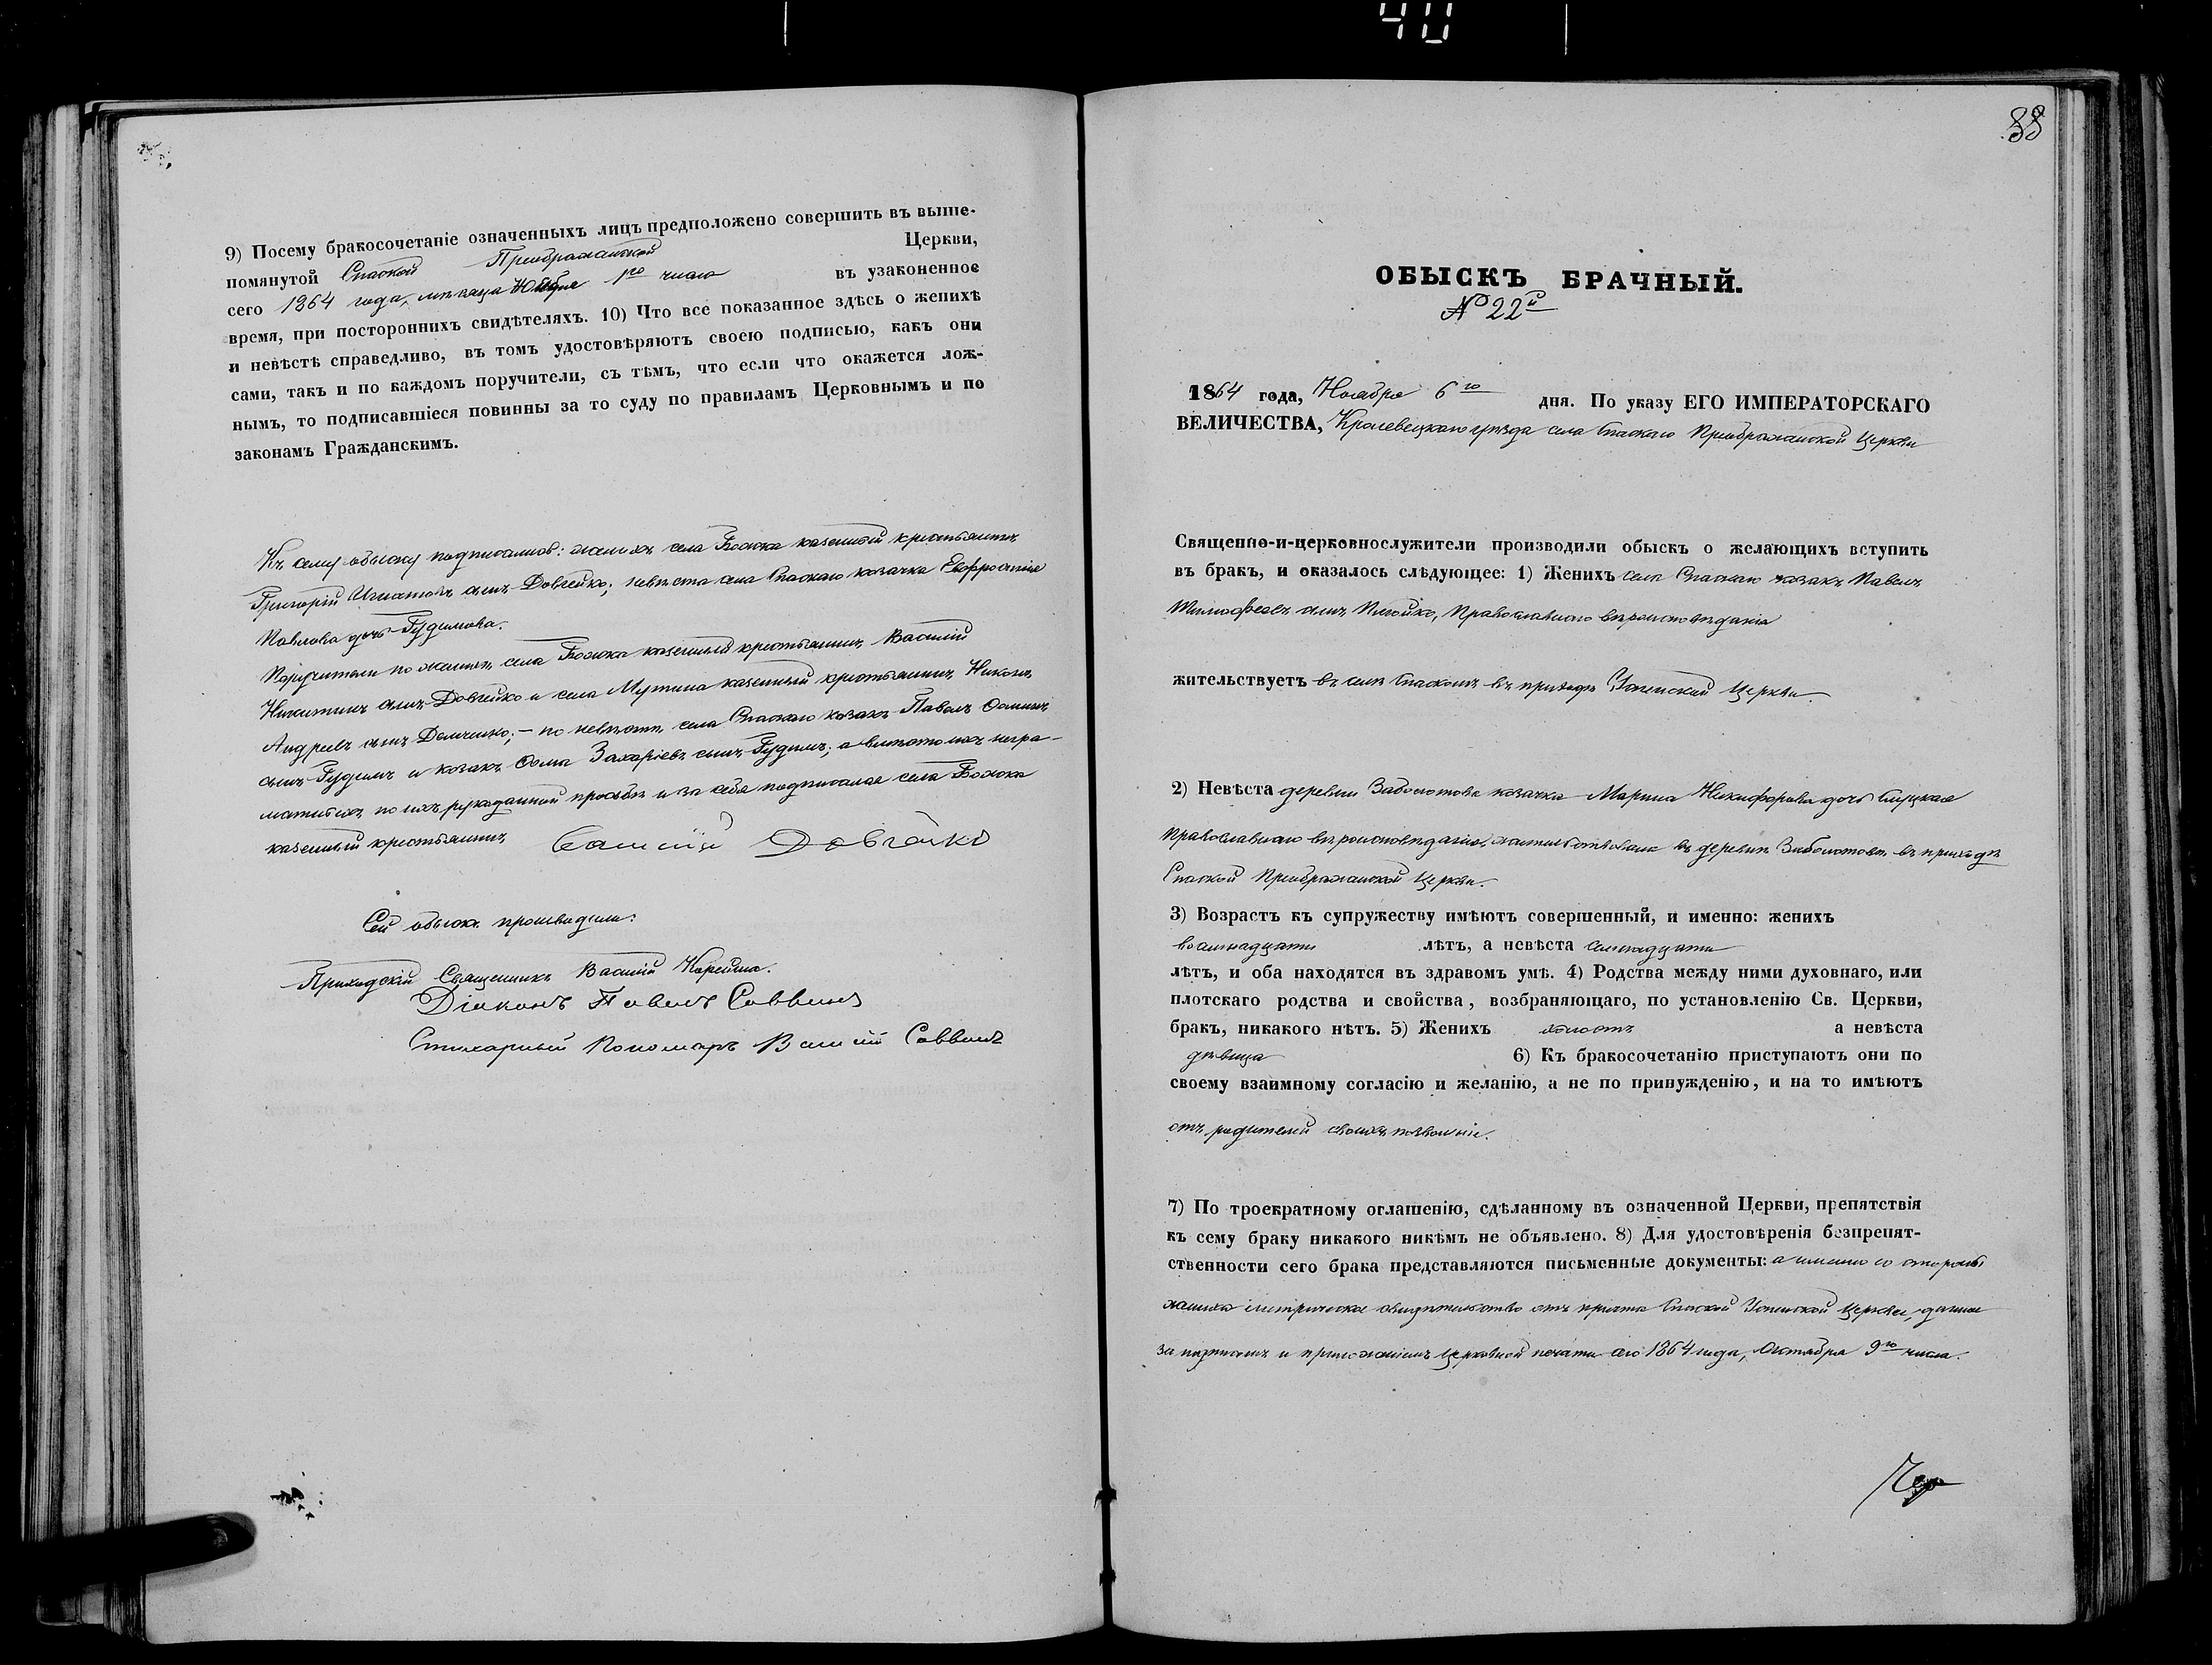 40
9) Посему бракосочетаніе означенныхъ лицъ предположено совершить въ выше-
помянутой Спаской Преображенской Церкви,
сего 1864 года, мѣсяца Ноября 1го числа въ узаконенное
время, при постороннихъ свидѣтеляхъ. 10) Что все показанное здѣсь о женихѣ
и невѣстѣ справедливо, въ томъ удостовѣряютъ своею подписью, какъ они
сами, такъ и по каждомъ поручители, съ тѣмъ, что если что окажется лож-
нымъ, то подписавшіеся повинны за то суду по правиламъ Церковнымъ и по
законамъ Гражданскимъ.
Къ сему обыску подписались: женихъ села Божка казенный крестьянинъ
Григорій Игнатовъ сынъ Довгейко; невѣста села Спаскаго козачка Евфросинія
Павлова дочь Гудимова.
Поручители по женихѣ села Божка казенный крестьянинъ Василій
Никитинъ сынъ Довгейко и села Мутина казенный крестьянинъ Никонъ
Андреевъ сынъ Демченко; – по невѣстѣ села Спаскаго козакъ Павелъ Фоминъ
сынъ Гудимъ и козакъ Фома Захаріевъ сынъ Гудимъ; а вмѣсто ихъ негра-
мотныхъ по ихъ рукоданной прозьбѣ и за себя подписался села Божка
казенный крестьянинъ Василій Довгейко
Сей обыскъ производили:
Приходскій Священникъ Василій Корейша.
Діаконъ Павелъ Саввинъ
Стихарный Пономарь Василій Саввинъ
38
ОБЫСКЪ БРАЧНЫЙ.
№ 22й
1864 года, Ноября 6го дня. По указу ЕГО ИМПЕРАТОРСКАГО
ВЕЛИЧЕСТВА, Кролевецкаго уѣзда села Спаскаго Преображенской Церкви
Священно-и-церковнослужители производили обыскъ о желающихъ вступить
въ бракъ, и оказалось слѣдующее: 1) Женихъ села Спаскаго козакъ Павелъ
Тимофеевъ сынъ Православнаго вѣроисповѣданія
жительствуетъ въ селѣ Спаскомъ въ приходѣ Успенской Церкви.
2) Невѣста деревни Заболотова козачка Марина Никифорова дочь Слуцкая
Православнаго вѣроисповѣданія, жительствовала въ деревнѣ Заболотовѣ въ приходѣ
Спаской Преображенской Церкви.
3) Возрастъ къ супружеству имѣютъ совершенный, и именно: женихъ
восемнадцати лѣтъ, а невѣста семнадцати
лѣтъ, и оба находятся въ здравомъ умѣ. 4) Родства между ними духовнаго, или
плотскаго родства и свойства, возбраняющаго, по установленію Св. Церкви,
бракъ, никакого нѣтъ. 5) Женихъ холостъ а невѣста
дѣвица 6) Къ бракосочетанію приступаютъ они по
своему взаимному согласію и желанію, а не по принужденію, и на то имѣютъ
отъ родителей своихъ позволеніе.
7) По троекратному оглашенію, сдѣланному въ означенной Церкви, препятствія
къ сему браку никакого никѣмъ не объявлено. 8) Для удостовѣренія безпрепят-
ственности сего брака представляются письменные документы: а именно со стороны
жениха метрическое свидѣтельство отъ причта Спаской Успенской Церкви, данное
за подписомъ и приложеніемъ Церковной печати сего 1864 года, Октября 9го числа.